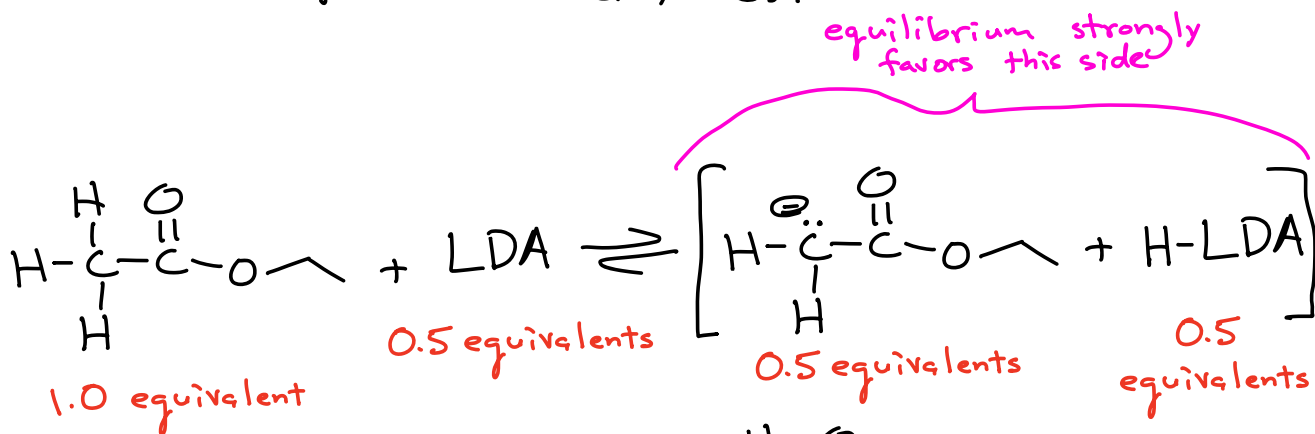 equilibrium strongly
favors this side
H O
H-C-C-O + LDA ⇌ [H-C-C-O + H-LDA]
H H
0.5 equivalents 0.5 equivalents 0.5
1.0 equivalent equivalents